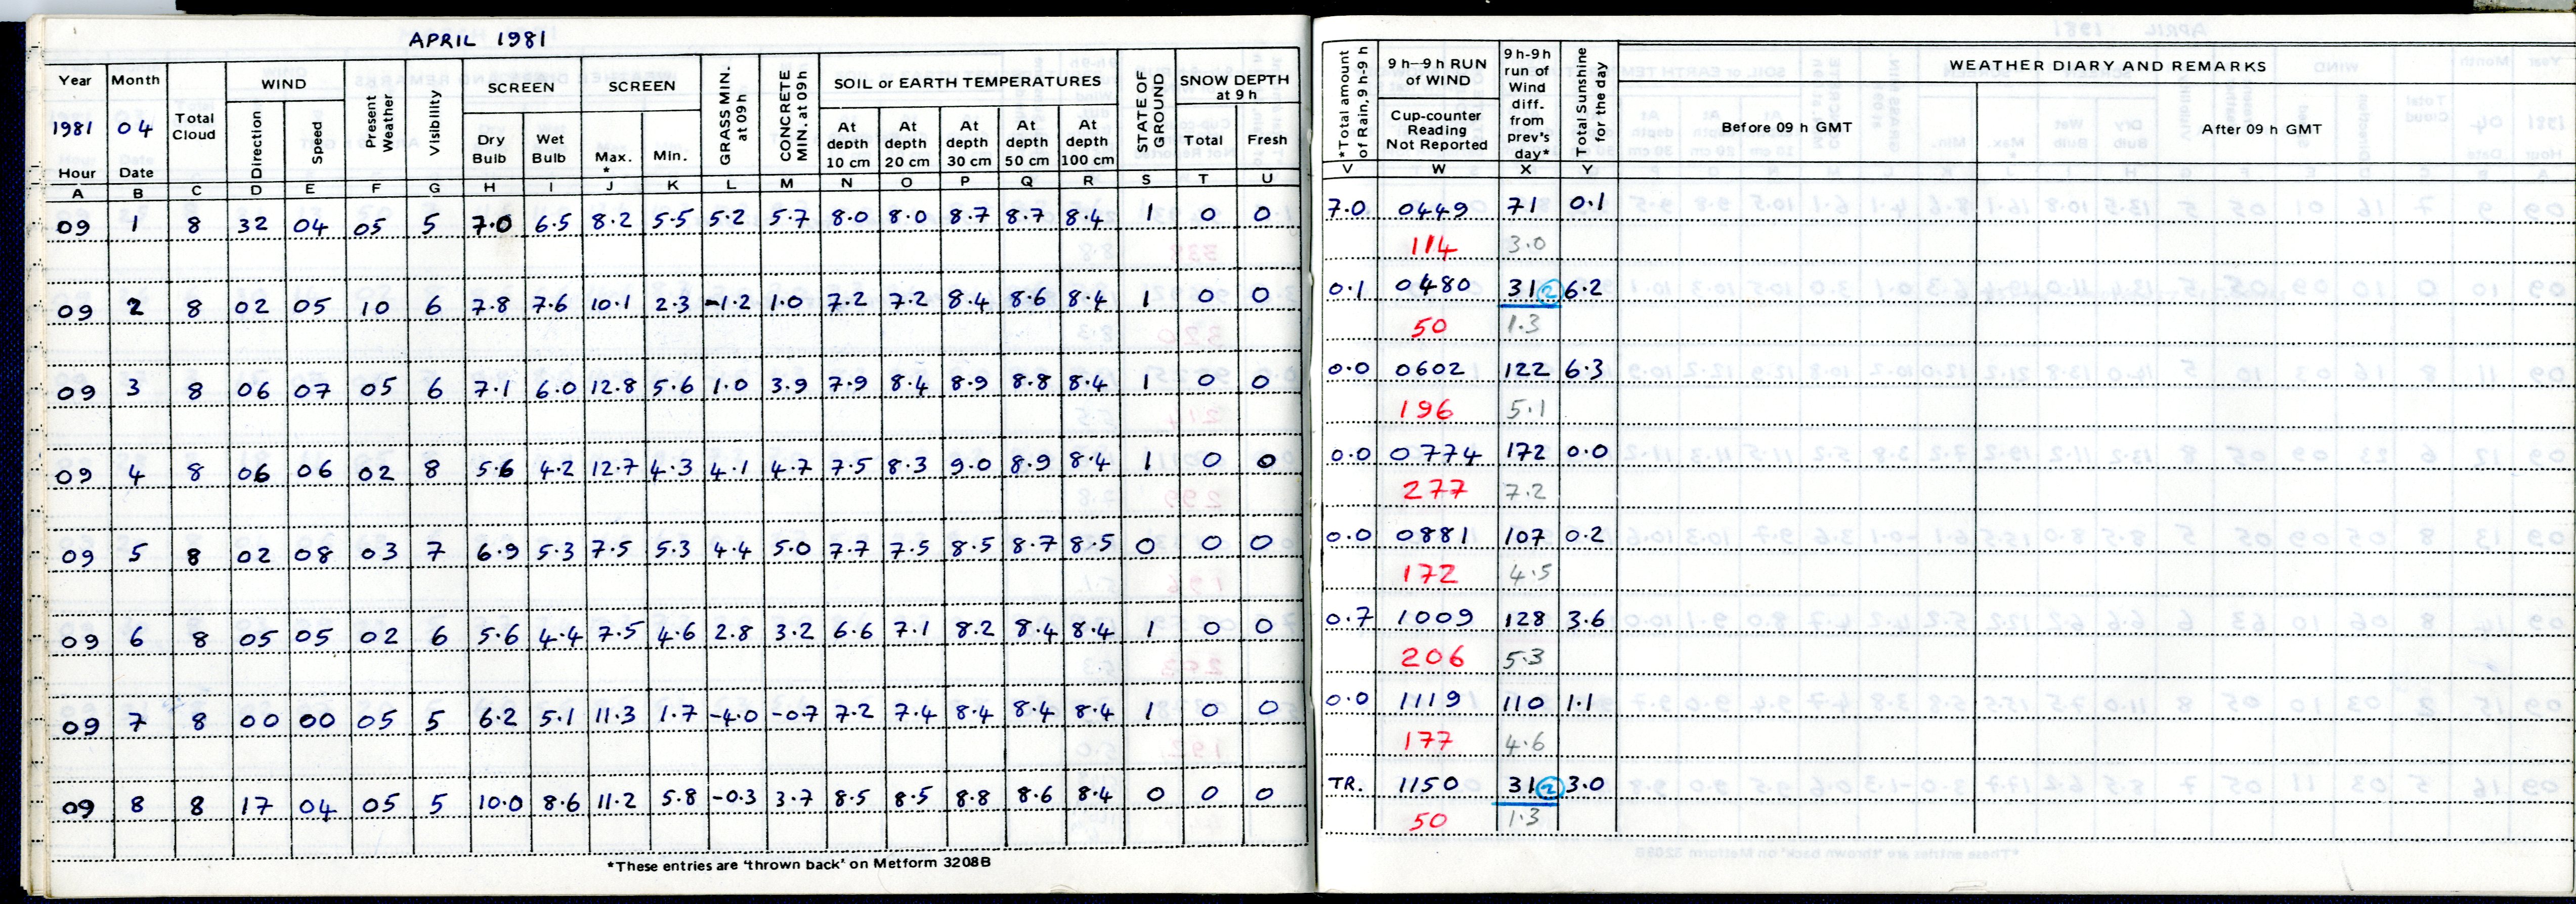 APRIL 1981
Year Month Total Cloud WIND Present Weather Visibility SCREEN SCREEN GRASS MIN. at 09h CONCRETE MIN. at 09h SOIL or EARTH TEMPERATURES STATE OF GROUND SNOW DEPTH at 9 h *Total amount of Rain, 9h-9h 9h—9h RUN of WIND 9h-9h run of Wind diff. from prev's day* Total Sunshine for the day WEATHER DIARY AND REMARKS
1981 04 Direction Speed Dry Bulb Wet Bulb Max. * Min. At depth 10 cm At depth 20 cm At depth 30 cm At depth 50 cm At depth 100 cm Total Fresh Cup-counter Reading Not Reported Before 09 h GMT After 09 h GMT
Hour Date
A B C D E F G H I J K L M N O P Q R S T U V W X Y
09 1 8 32 04 05 5 7.0 6.5 8.2 5.5 5.2 5.7 8.0 8.0 8.7 8.7 8.4 1 0 0 7.0 0449 71 0.1
114 3.0
09 2 8 02 05 10 6 7.8 7.6 10.1 2.3 -1.2 1.0 7.2 7.2 8.4 8.6 8.4 1 0 0 0.1 0480 31 2 6.2
50 1.3
09 3 8 06 07 05 6 7.1 6.0 12.8 5.6 1.0 3.9 7.9 8.4 8.9 8.8 8.4 1 0 0 0.0 0602 122 6.3
196 5.1
09 4 8 06 06 02 8 5.6 4.2 12.7 4.3 4.1 4.7 7.5 8.3 9.0 8.9 8.4 1 0 0 0.0 0774 172 0.0
277 7.2
09 5 8 02 08 03 7 6.9 5.3 7.5 5.3 4.4 5.0 7.7 7.5 8.5 8.7 8.5 0 0 0 0.0 0881 107 0.2
172 4.5
09 6 8 05 05 02 6 5.6 4.4 7.5 4.6 2.8 3.2 6.6 7.1 8.2 8.4 8.4 1 0 0 0.7 1009 128 3.6
206 5.3
09 7 8 00 00 05 5 6.2 5.1 11.3 1.7 -4.0 -0.7 7.2 7.4 8.4 8.4 8.4 1 0 0 0.0 1119 110 1.1
177 4.6
09 8 8 17 04 05 5 10.0 8.6 11.2 5.8 -0.3 3.7 8.5 8.5 8.8 8.6 8.4 0 0 0 TR. 1150 31 2 3.0
50 1.3
*These entries are 'thrown back' on Metform 3208B